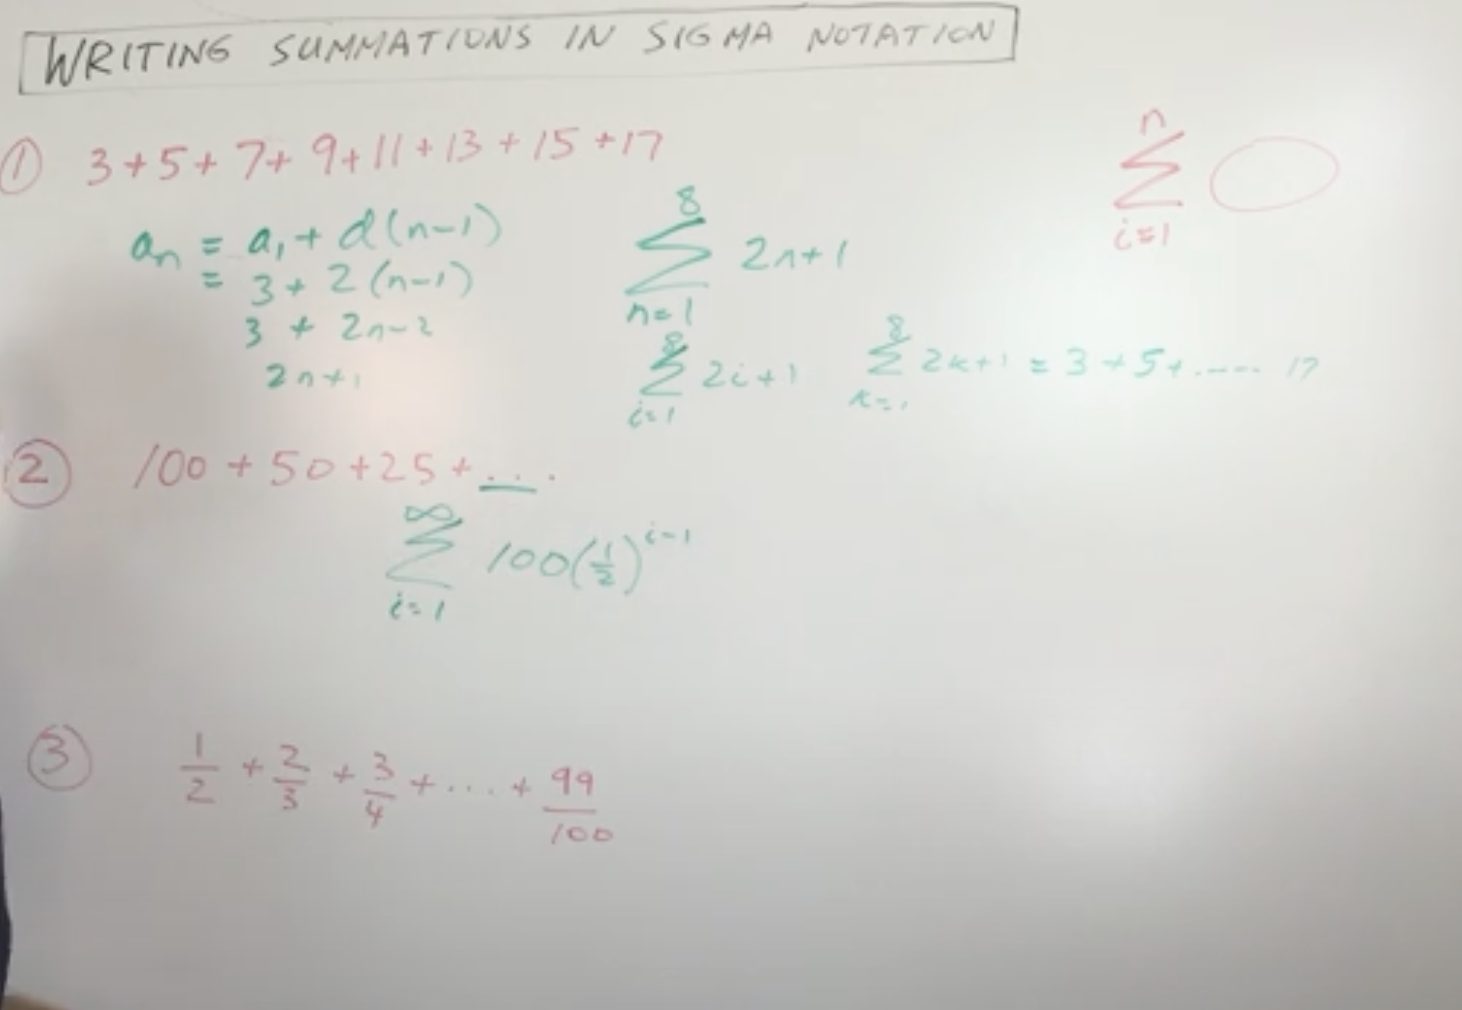 WRITING SUMMATIONS IN SIGMA NOTATION
① 3+5+7+9+11+13+15+17
n
∑
i=1
aₙ = a₁ + d(n-1)
= 3 + 2(n-1)
3 + 2n-2
2n+1
8
∑ 2n+1
n=1
8
∑ 2i+1
i=1
8
∑ 2k+1 = 3+5+..... 17
k=1
② 100 + 50 + 25 + ...
∞
∑ 100(1/2)^(i-1)
i=1
③ 1/2 + 2/3 + 3/4 + ... + 99/100